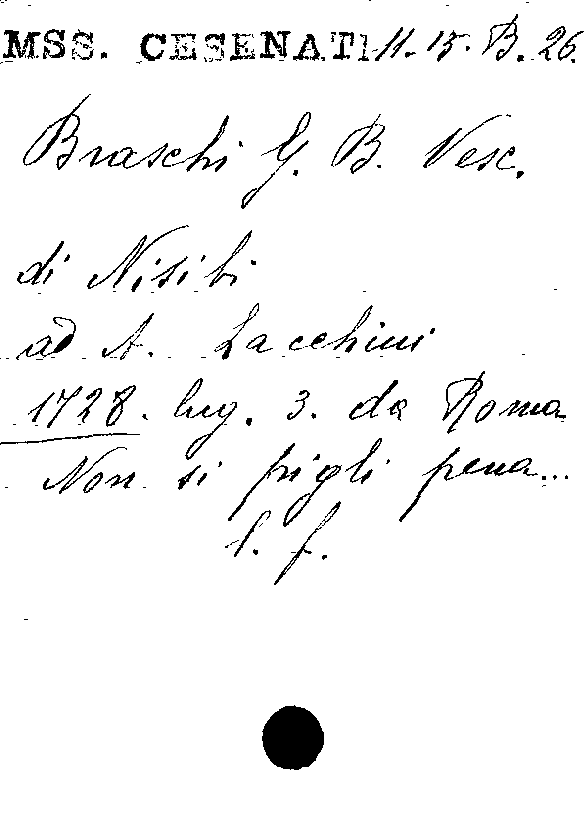 MSS. CESENATI 11. 15. B. 26.
Braschi G. B. Vesc.
di Nisibi
ad A. Lacchini
1728. lug. 3. da Roma
Non si pigli pena...
l. f.